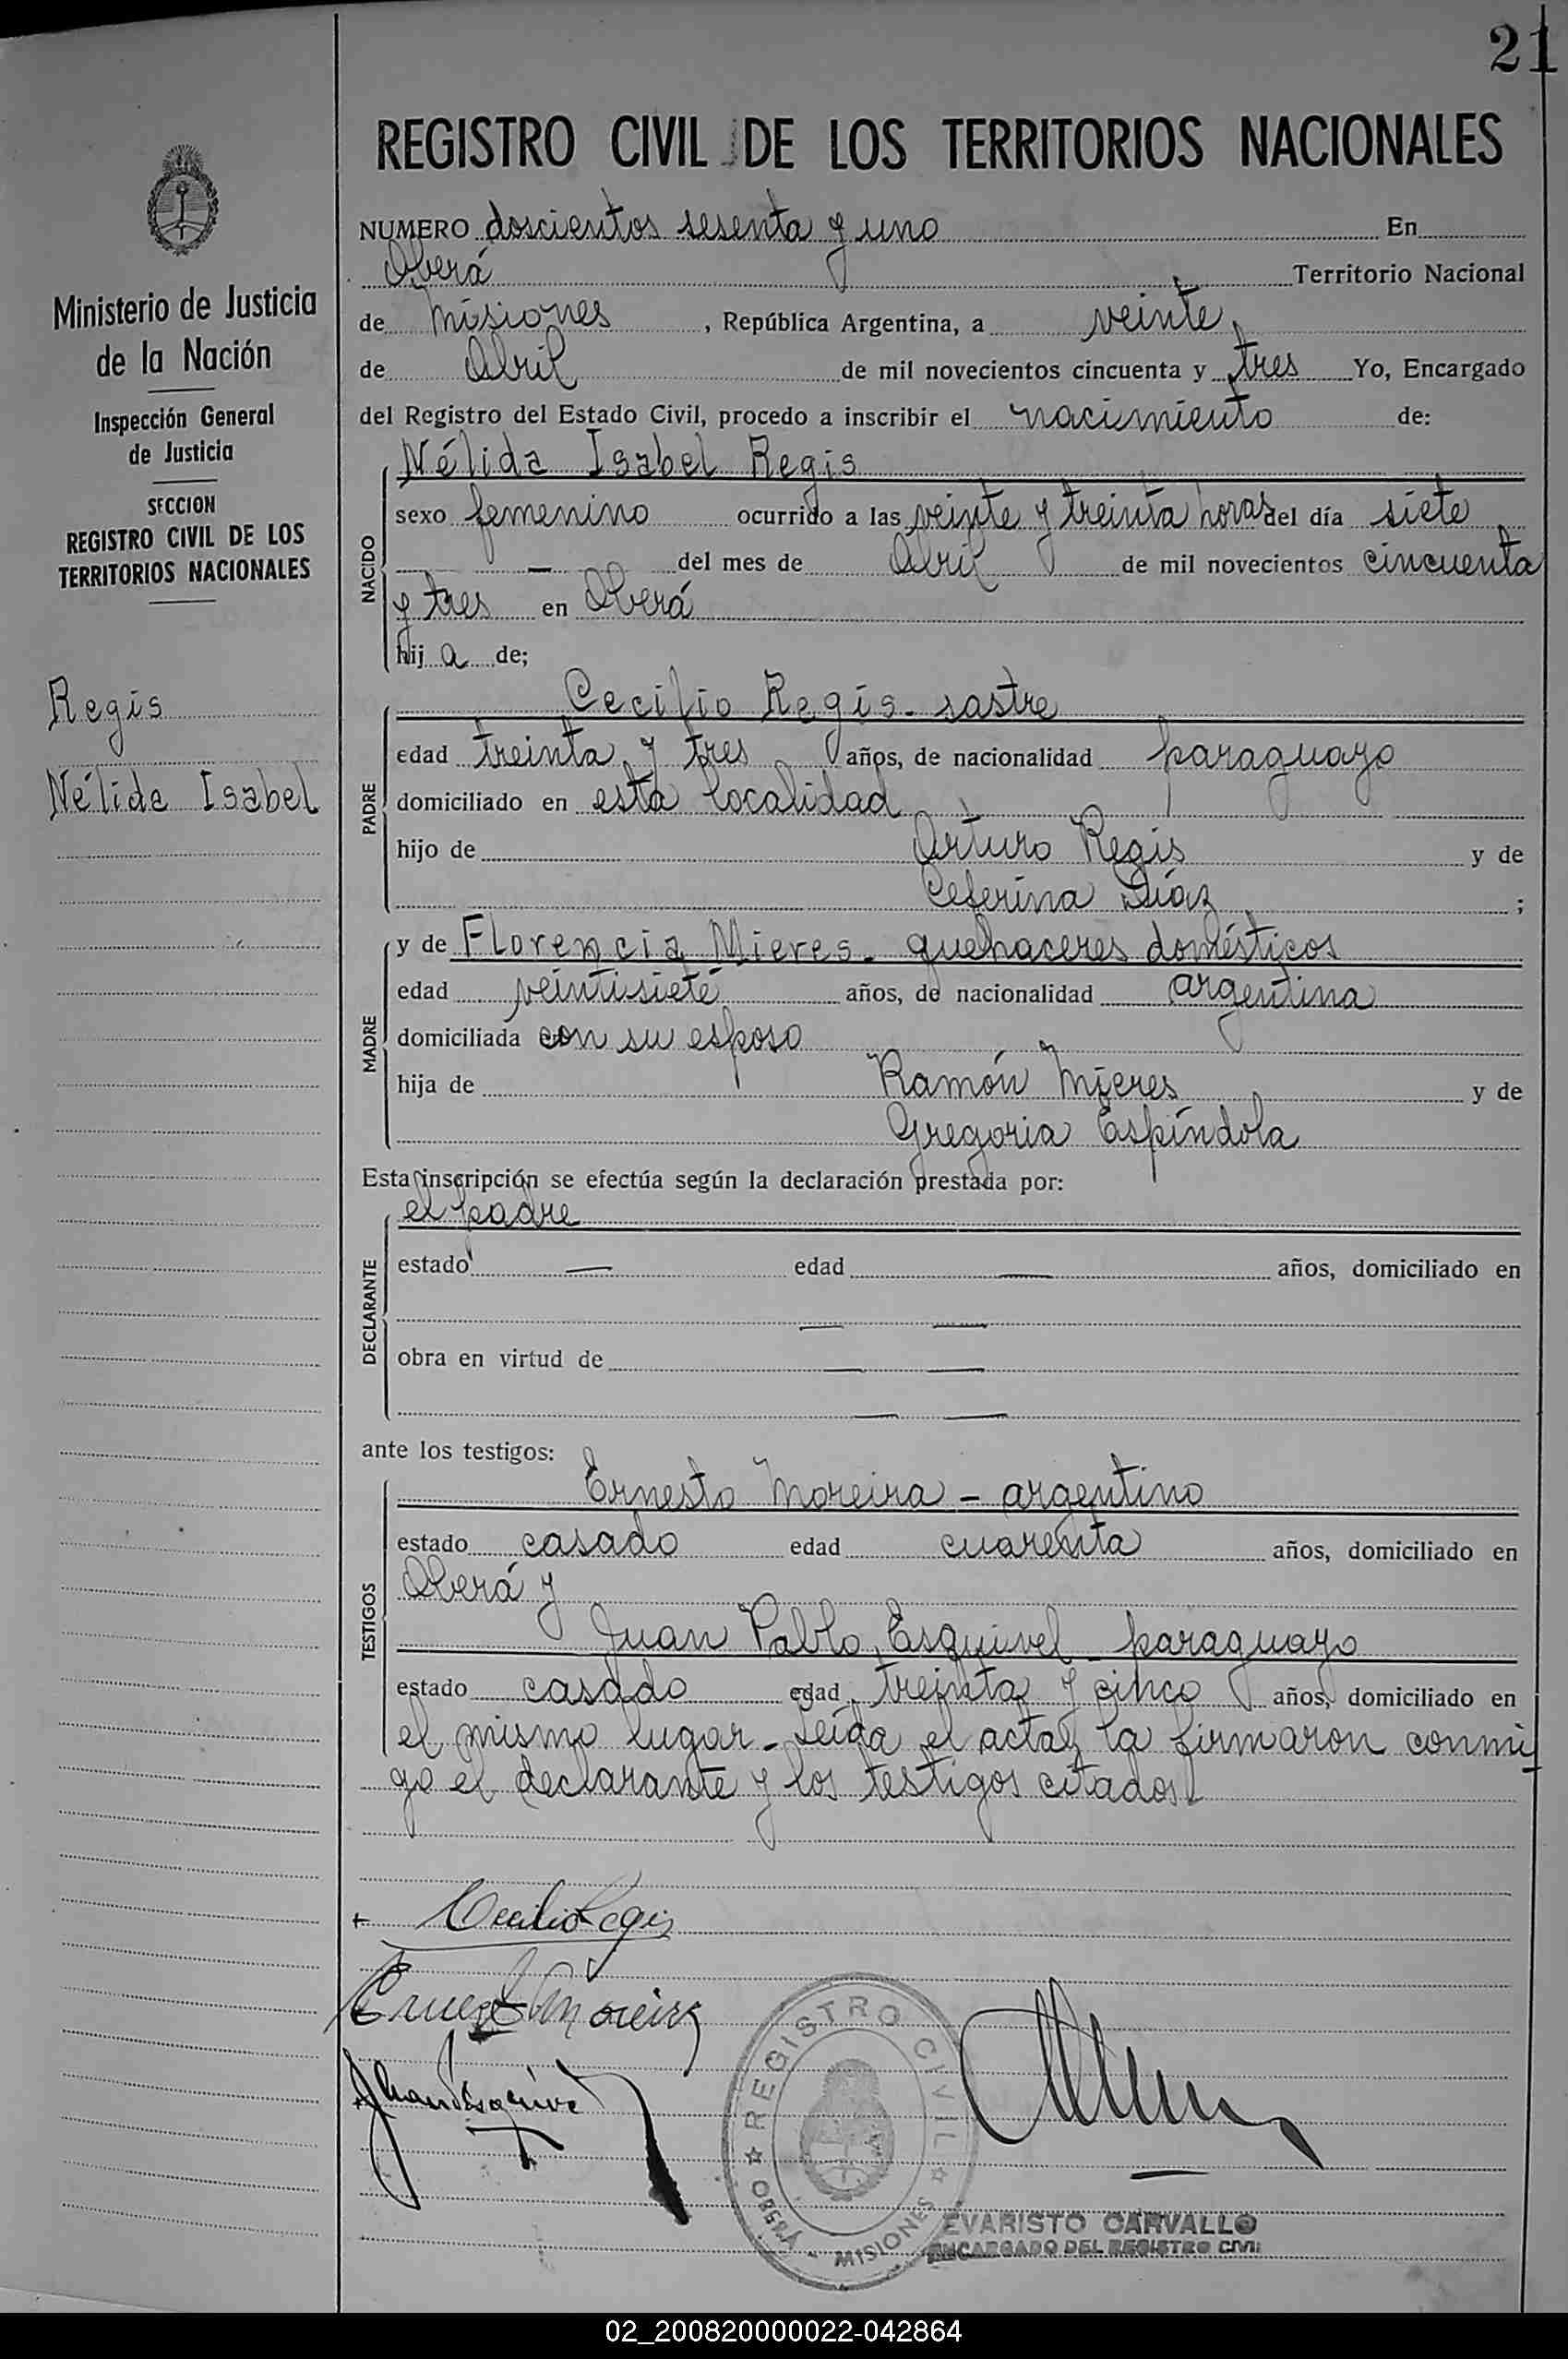 21
REGISTRO CIVIL DE LOS TERRITORIOS NACIONALES
Ministerio de Justicia
de la Nación
Inspección General
de Justicia
SECCION
REGISTRO CIVIL DE LOS
TERRITORIOS NACIONALES
Regis
Nélida Isabel
NUMERO doscientos sesenta y uno En
Oberá Territorio Nacional
de Misiones, República Argentina, a veinte
de Abril de mil novecientos cincuenta y tres Yo, Encargado
del Registro del Estado Civil, procedo a inscribir el nacimiento de:
NACIDO
Nélida Isabel Regis
sexo femenino ocurrido a las veinte y treinta horas del día siete
— del mes de Abril de mil novecientos cincuenta
y tres en Oberá
hij a de;
PADRE
Cecilio Regis - sastre
edad treinta y tres años, de nacionalidad paraguayo
domiciliado en esta localidad
hijo de Arturo Regis y de
Ceferina Díaz ;
MADRE
y de Florencia Mieres - quehaceres domésticos
edad veintisiete años, de nacionalidad argentina
domiciliada con su esposo
hija de Ramón Mieres y de
Gregoria Espíndola
Esta inscripción se efectúa según la declaración prestada por:
DECLARANTE
el padre
estado — edad — años, domiciliado en
— —
obra en virtud de — —
— —
ante los testigos:
TESTIGOS
Ernesto Moreira - argentino
estado casado edad cuarenta años, domiciliado en
Oberá y
Juan Pablo Esquivel - paraguayo
estado casado edad treinta y cinco años, domiciliado en
el mismo lugar - Leída el acta, la firmaron conmi
go el declarante y los testigos citados.
Cecilio Regis
Ernesto Moreira
Juan Esquivel
REGISTRO CIVIL
OBERÁ - MISIONES
EVARISTO CARVALLO
ENCARGADO DEL REGISTRO CIVIL
02_200820000022-042864